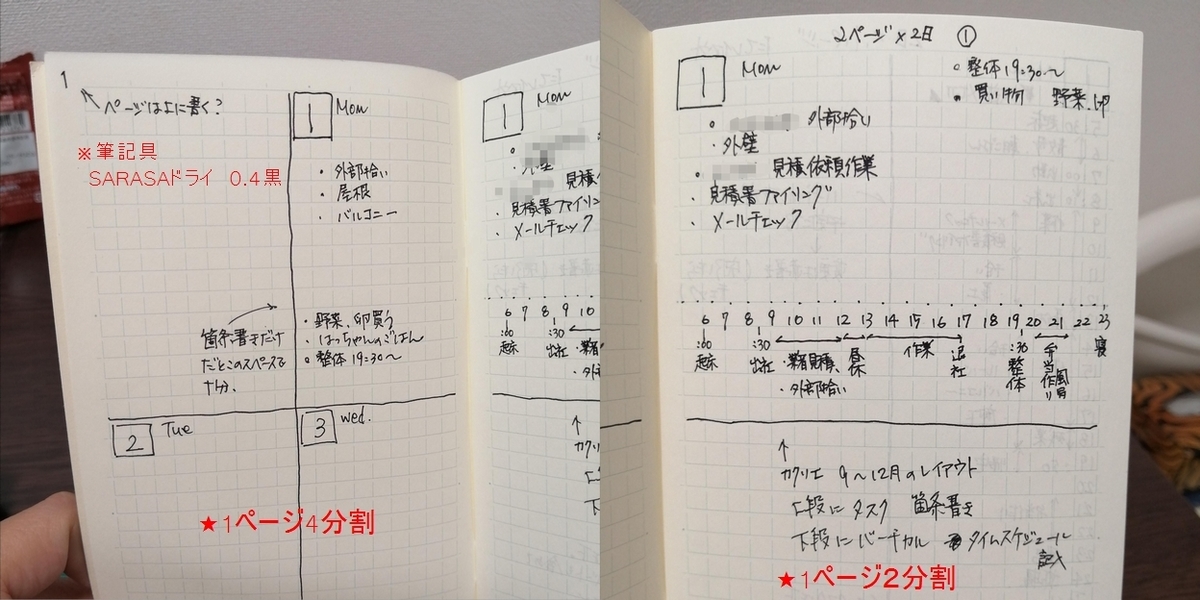 1
ページは上に書く?
※筆記具
SARASAドライ 0.4黒
1 Mon
・外部拾い
・屋根
・バルコニー
箇条書きだけ
だとこのスペースで
十分.
・野菜、卵買う
・はっちゃんのごはん
・整体 19:30〜
2 Tue
3 wed.
★1ページ4分割
1 Mon
見積
・見積書ファイリン
・メールチェック
6 7 8 9 10
:00 :30
起床 出社
・外
↑
カクリ
下
2ページ×2日 ①
1 Mon
・整体 19:30〜
・買い物 野菜、卵
外部拾い
・外壁
見積依頼作業
・見積書ファイリング
・メールチェック
6 7 8 9 10 11 12 13 14 15 16 17 18 19 20 21 22 23
:00 :30 :30
起床 出社 ・業者見積、 昼休 作業 退社 整体 弁当作り 風呂 寝
・外部拾い
↑
カクリエ 9〜12月のレイアウト
上段にタスク 箇条書き
下段にバーチカル タイムスケジュール
記入
★1ページ2分割